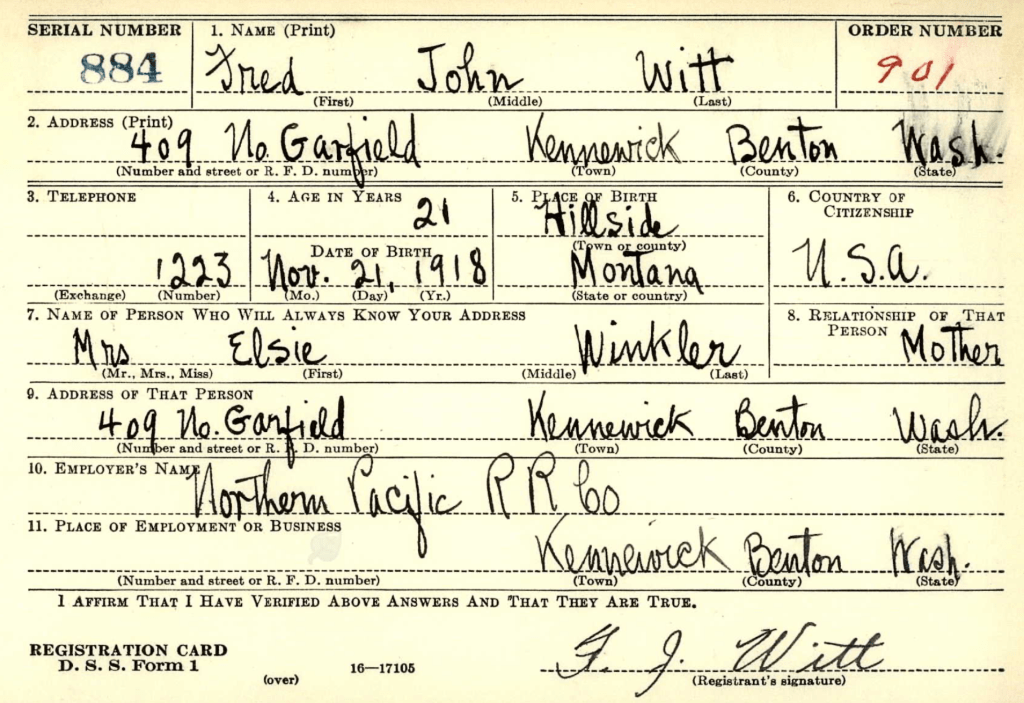 SERIAL NUMBER 1. NAME (Print) ORDER NUMBER
884 Fred John Witt 901
(First) (Middle) (Last)
2. ADDRESS (Print)
409 No. Garfield Kennewick Benton Wash.
(Number and street or R. F. D. number) (Town) (County) (State)
3. TELEPHONE 4. AGE IN YEARS 5. PLACE OF BIRTH 6. COUNTRY OF CITIZENSHIP
21 Hillside
DATE OF BIRTH (Town or county)
1223 Nov. 21, 1918 Montana U.S.A.
(Exchange) (Number) (Mo.) (Day) (Yr.) (State or country)
7. NAME OF PERSON WHO WILL ALWAYS KNOW YOUR ADDRESS 8. RELATIONSHIP OF THAT PERSON
Mrs Elsie Winkler Mother
(Mr., Mrs., Miss) (First) (Middle) (Last)
9. ADDRESS OF THAT PERSON
409 No. Garfield Kennewick Benton Wash.
(Number and street or R. F. D. number) (Town) (County) (State)
10. EMPLOYER'S NAME
Northern Pacific R R Co
11. PLACE OF EMPLOYMENT OR BUSINESS
Kennewick Benton Wash.
(Number and street or R. F. D. number) (Town) (County) (State)
I AFFIRM THAT I HAVE VERIFIED ABOVE ANSWERS AND THAT THEY ARE TRUE.
REGISTRATION CARD
D. S. S. Form 1 16—17105 F. J. Witt
(over) (Registrant's signature)